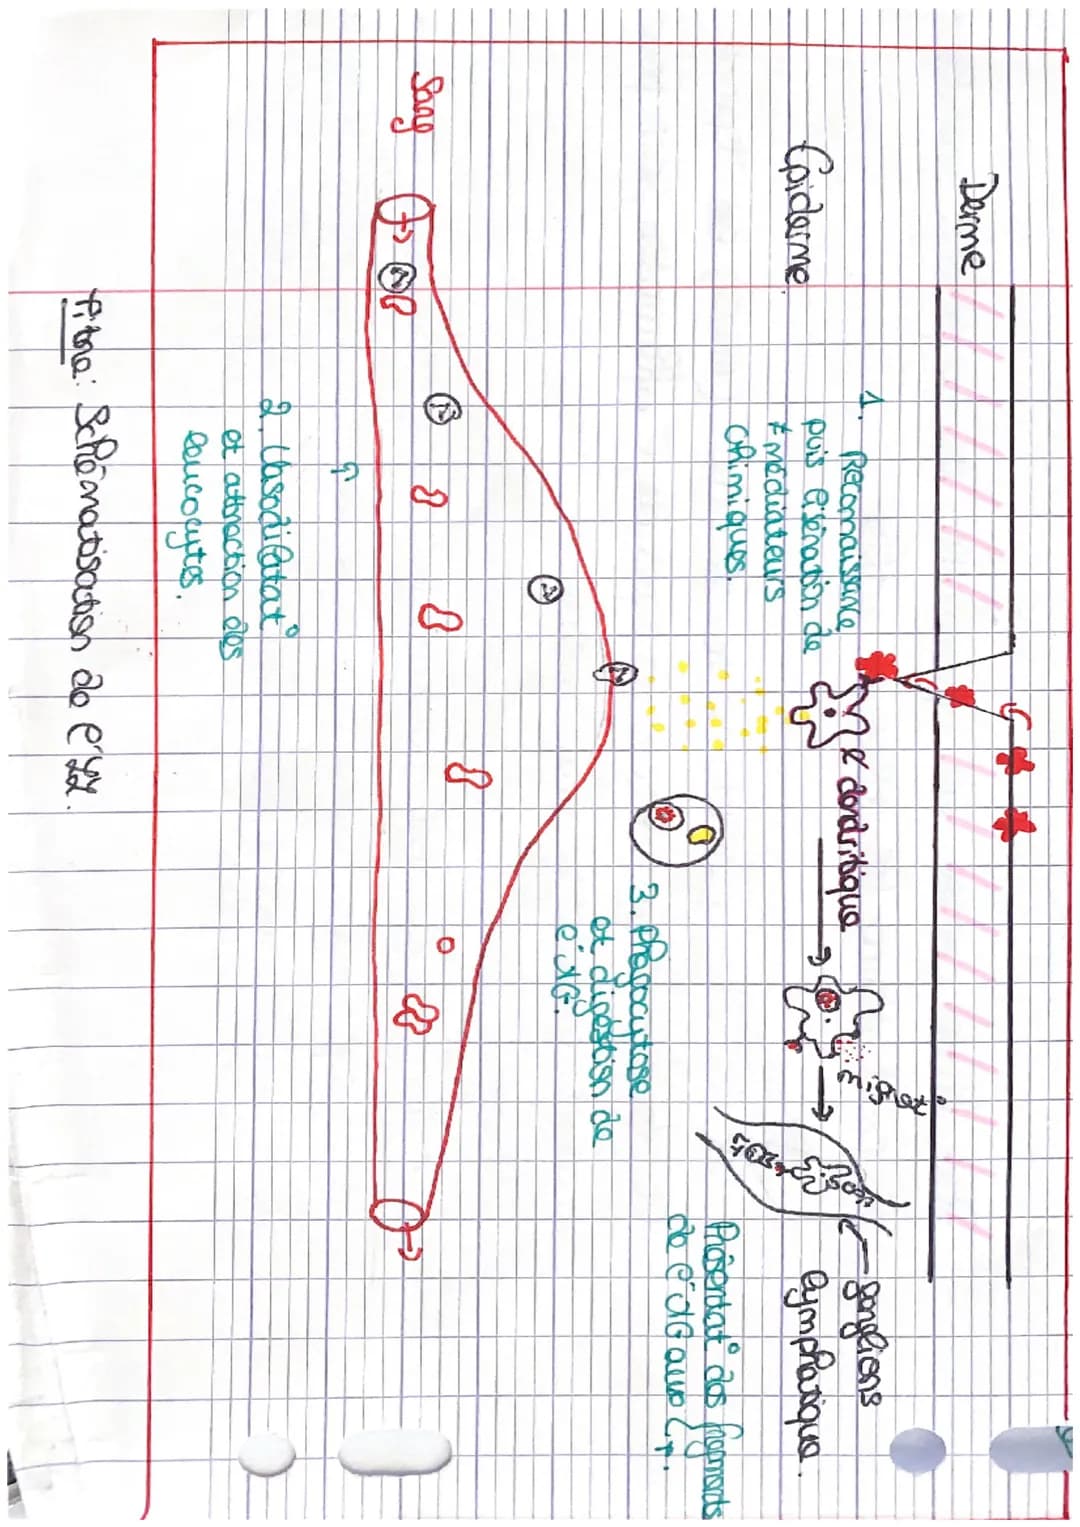 Derme
Epiderme
1. Reconnaissance
puis libération de
≠ médiateurs
chimiques.
dendritique
migrat°
ganglions
lymphatique.
Présentat° des fragments
de l'AG aux LT.
3. Phagocytose
et digestion de
l'AG.
Sang
2. Vasodilatat°
et attraction des
leucocytes.
Titre: Schématisation de l'